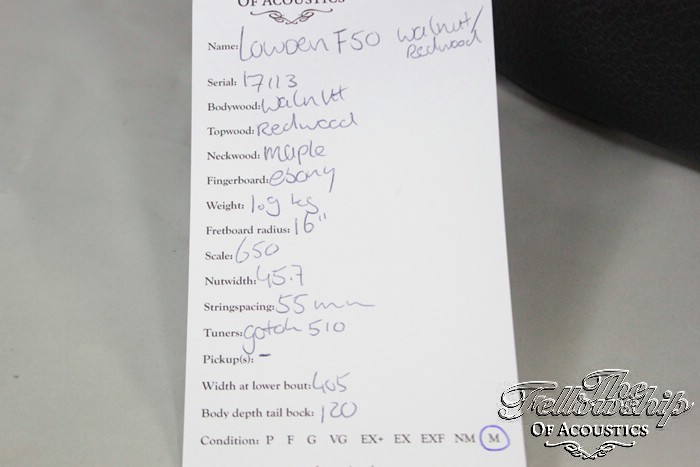 OF ACOUSTICS
Name: Lowden F50 walnut/
Redwood
Serial: 17113
Bodywood: walnut
Topwood: Redwood
Neckwood: maple
Fingerboard: ebony
Weight: 1.9 kg
Fretboard radius: 16"
Scale: 650
Nutwidth: 45.7
Stringspacing: 55 mm
Tuners: gotoh 510
Pickup(s): -
Width at lower bout: 405
Body depth tail bock: 120
Condition: P F G VG EX+ EX EXF NM M
The
Fellowship
OF ACOUSTICS